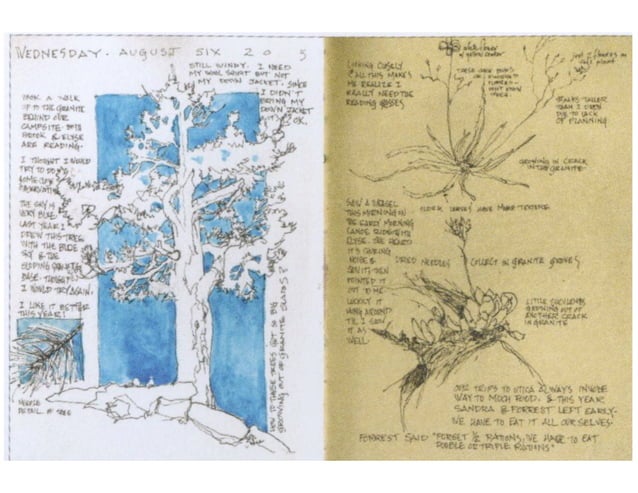 WEDNESDAY. AUGUST SIX 2005
STILL WINDY. I NEED
MY WOOL SHIRT BUT NOT
MY DOWN JACKET. SINCE
I DIDN'T
BRING MY
DOWN JACKET
IT'S OK.
TOOK A WALK
UP TO THE GRANITE
BEHIND OUR
CAMPSITE. BOTH
& ELYSE
ARE READING.
I THOUGHT I WOULD
TRY TO DO
SOME
THE SKY IS
VERY BLUE.
LAST YEAR I
DREW THIS TREE
WITH THE BLUE
SKY & THE
SLOPING GRANITE
BASE. THOUGHT
I WOULD TRY AGAIN.
I LIKE IT BETTER
THIS YEAR!
NEEDLE
DETAIL OF TREE
HOW DO THESE TREES GET SO BIG
GROWING OUT OF GRANITE SLABS?
LOOKING CLOSELY
AT ALL THIS MAKES
ME REALIZE I
REALLY NEED THE
READING GLASSES
JUST 2 FLOWERS ON
THIS PLANT
STALKS TALLER
THAN I DREW
DUE TO LACK
OF PLANNING
GROWING IN CRACK
IN THE GRANITE
CLOCK LEAVES HAVE MORE TEXTURE
SAW A WEASEL
THIS MORNING ON
THE EARLY MORNING
CANOE RIDE WITH
ELYSE. SHE HEARD
IT'S
NOISE &
THEN
POINTED IT
OUT TO ME.
LUCKILY IT
HUNG AROUND
TIL I SAW
IT AS
WELL
DRIED NEEDLES COLLECT IN GRANITE GROOVES
LITTLE SUCCULENTS
GROWING OUT OF
ANOTHER CRACK
IN GRANITE
OUR TRIPS TO UTICA ALWAYS INVOLVE
WAY TO MUCH FOOD. & THIS YEAR
SANDRA & FORREST LEFT EARLY.
WE HAVE TO EAT IT ALL OURSELVES.
FORREST SAID "FORGET ½ RATIONS, WE HAVE TO EAT
DOUBLE OR TRIPLE RATIONS"